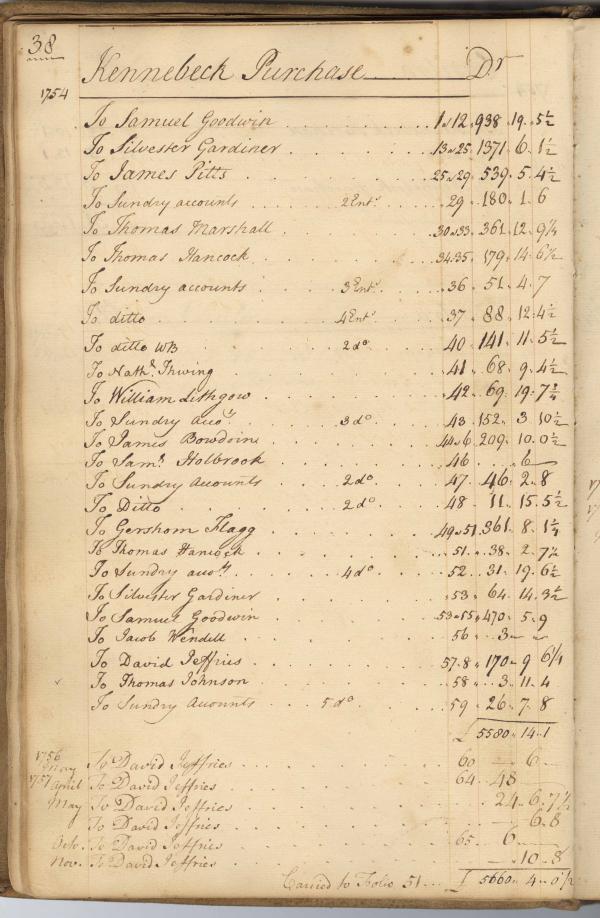 38
Kennebeck Purchase Dr
1754
To Samuel Goodwin 1 a 12 938 19 5½
To Silvester Gardiner 13 a 25 1371 6 1½
To James Pitts 25 a 29 539 5 4½
To Sundry accounts 2 Ents 29 180 1 6
To Thomas Marshall 30 a 33 361 12 9¼
To Thomas Hancock 34.35 179 14 6½
To Sundry accounts 3 Ents 36 51 4 7
To ditto 4 Ents 37 88 12 4½
To ditto WB 2 do 40 141 11 5½
To Nathl Thwing 41 68 9 4½
To William Lithgow 42 69 19 7¾
To Sundry Accots 3 do 43 152 3 10½
To James Bowdoin 44 a 6 209 10 0½
To Saml Holbrook 46 6
To Sundry Accounts 2 do 47 46 2 8
To Ditto 2 do 48 11 15 5½
To Gershom Flagg 49 a 51 361 8 1¼
To Thomas Hancock 51 38 2 7½
To Sundry accots 4 do 52 31 19 6½
To Silvester Gardiner 53 64 14 3½
To Samuel Goodwin 53 a 55 470 5 9
To Jacob Wendell 56 3 - -
To David Jeffries 57.8 170 9 6¼
To Thomas Johnson 58 3 11 4
To Sundry Accounts 5 do 59 26 7 8
£ 5580 14 1
1756
May To David Jeffries 60 - 6 -
1757 April To David Jeffries 64 48 -
May To David Jeffries 24 6 7½
To David Jeffries - 6 8
Octo. To David Jeffries 65 6 -
Nov. To David Jeffries - 10 8
Carried to Folio 51 £ 5660 4 0½